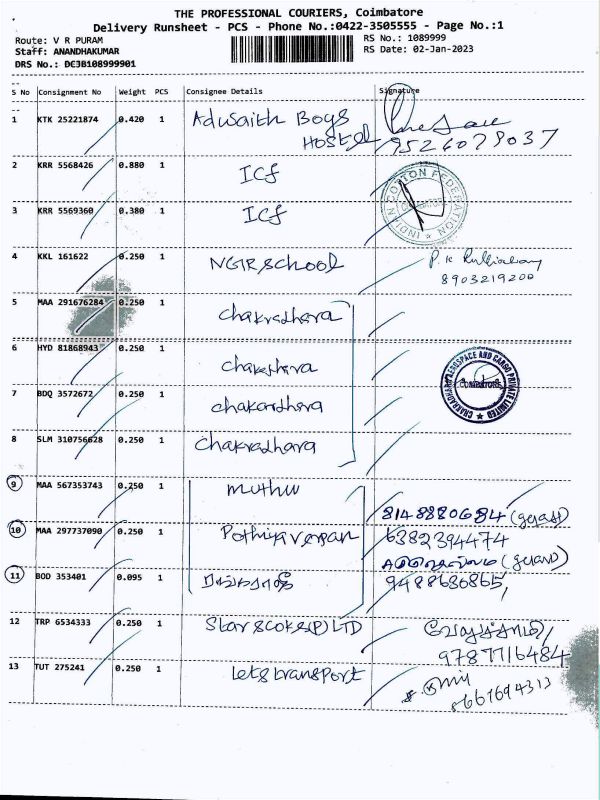 THE PROFESSIONAL COURIERS, Coimbatore
Delivery Runsheet - PCS - Phone No.:0422-3505555 - Page No.:1
Route: V R PURAM
RS No.: 1089999
Staff: ANANDHAKUMAR
RS Date: 02-Jan-2023
DRS No.: DEJB108999901
S No Consignment No Weight PCS Consignee Details Signature
1 KTK 25221874 0.420 1 Adusaith Boys
Hostel 9526079037
2 KRR 5568426 0.880 1 ICf
INDIAN COTTON FEDERATION
3 KRR 5569360 0.380 1 ICf
4 KKL 161622 0.250 1 NGR School P. K
8903219200
5 MAA 291676284 0.250 1 chakradhara
6 HYD 81868943 0.250 1
CHAKRADHARA AEROSPACE AND CARGO PRIVATE LIMITED
COIMBATORE
7 BDQ 3572672 0.250 1 chakardhara
8 SLM 310756628 0.250 1 chakradhara
9 MAA 567353743 0.250 1 muthu
8148880684
10 MAA 297737090 0.250 1 6382394474
11 BOD 353401 0.095 1 9488636865,
12 TRP 6534333 0.250 1 Star scoks(P) LTD
9787716484
13 TUT 275241 0.250 1 lets transport
8667694313